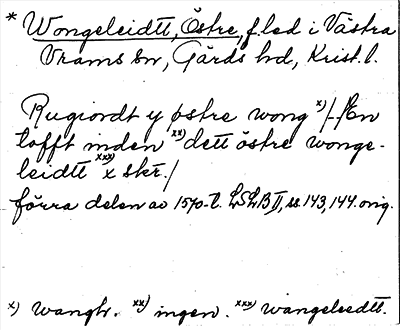 * Wongeleidtt, Östre, f.led i Västra
Vrams sn, Gärds hd, Krist. l.
Rugiordt y østre wong x) /-/ En
tofft inden xx) dett östre wonge-
leidtt xxx) x skr. /
förra delen av 1570-t. LSLB II, ss. 143, 144. orig.
x) wangh. xx) ingen. xxx) wangeleedtt.